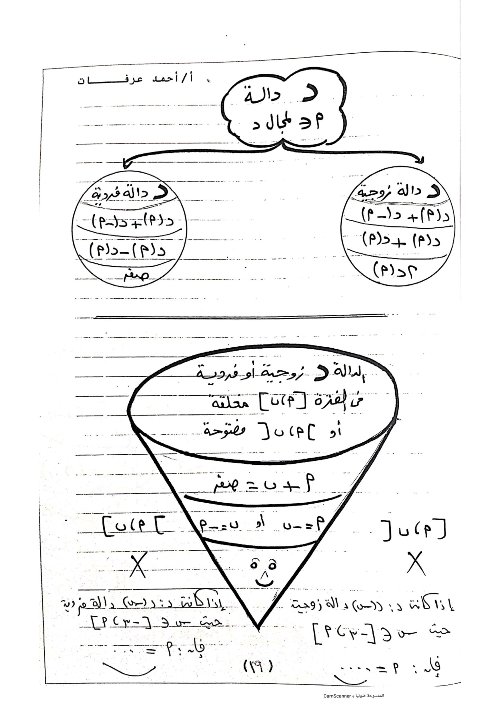 أ/أحمد عرفات
د دالة
م ∈ لمجال د
د دالة زوجية
د(م)+د(-م)
د(م)+د(م)
٢د(م)
د دالة فردية
د(م)+د(-م)
د(م)-د(م)
صفر
الدالة د زوجية أو فردية
في الفترة [م،ن] مغلقة
أو ]م،ن[ مفتوحة
م+ن=صفر
م=-ن أو ن=-م
[م،ن[
]م،ن]
إذا كانت د: د(س) دالة زوجية
حيث س ∈ [-٣،م]
فإن: م = ....
إذا كانت د: د(س) دالة فردية
حيث س ∈ [-٣،م]
فإن: م = ....
(٢٩)
الممسوحة ضوئيا بـ CamScanner